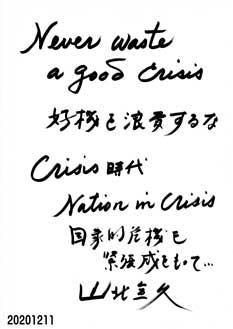 Never waste
a good crisis
好機を浪費するな
Crisis 時代
Nation in Crisis
国家的危機を
緊張感をもって…
20201211